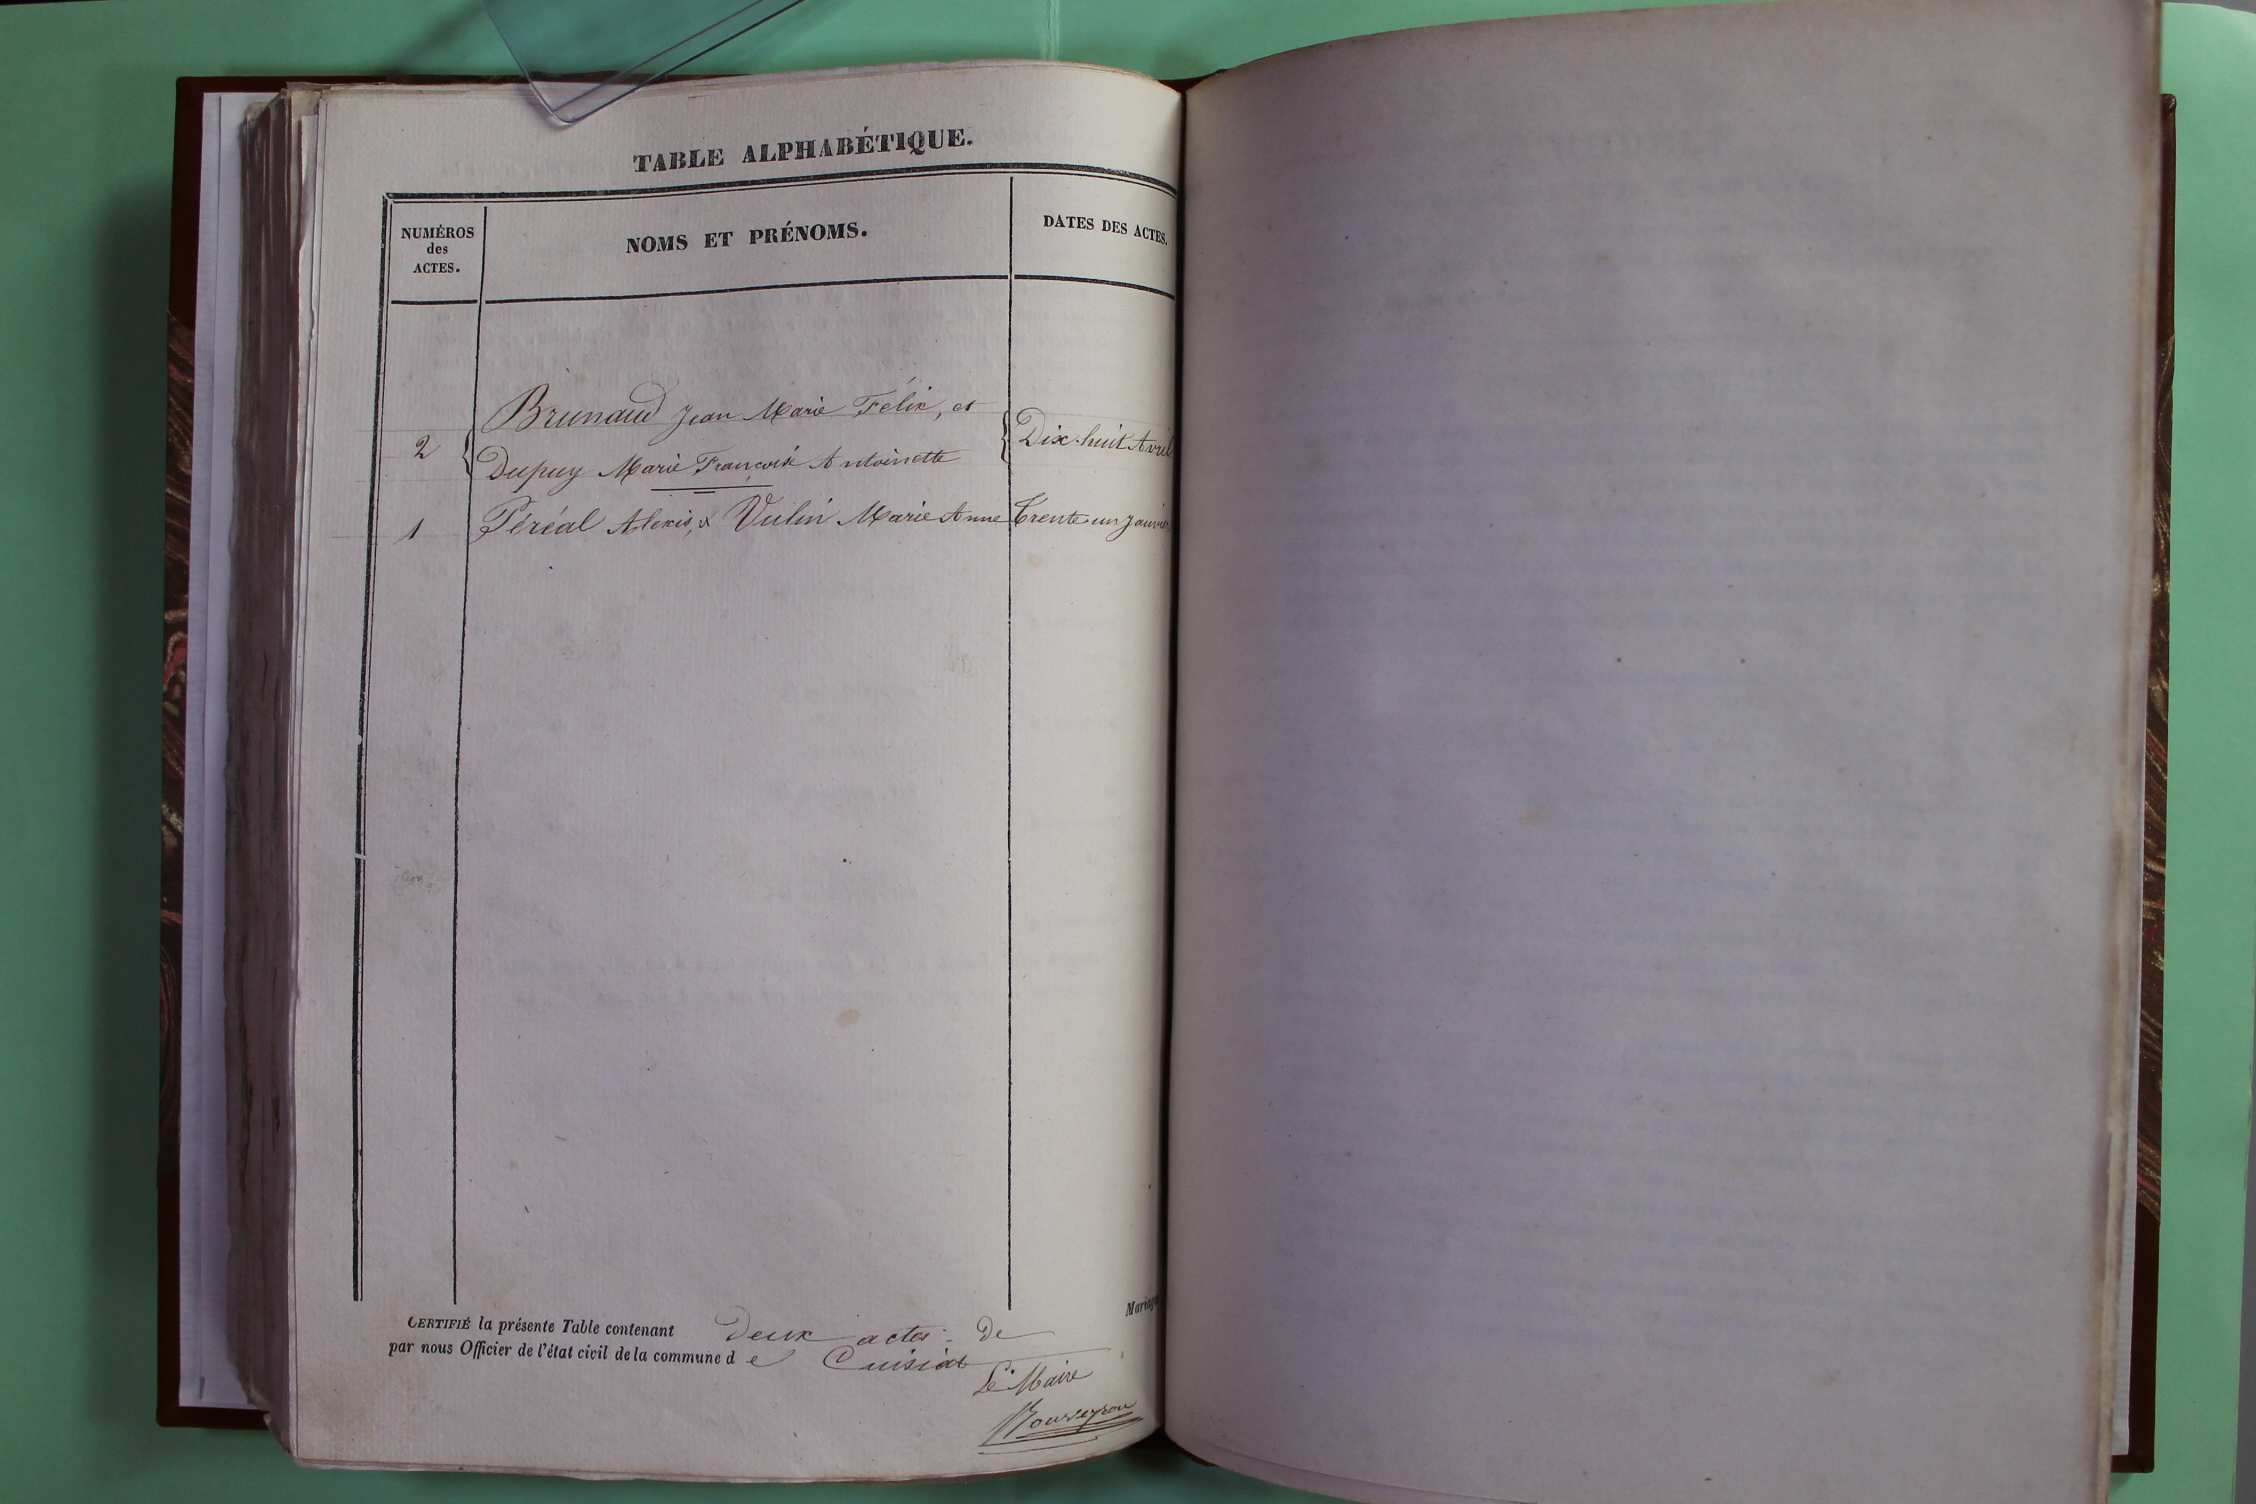 TABLE ALPHABÉTIQUE.
NUMÉROS des ACTES.
NOMS ET PRÉNOMS.
DATES DES ACTES.
Brunaud Jean Marie Félix, et
2
Dupuy Marie Françoise Antoinette
Dix-huit Avril
1
Péréal Alexis, & Vulin Marie Anne
Trente-un Janvier
Mariage
CERTIFIÉ la présente Table contenant Deux actes de
par nous Officier de l'état civil de la commune de Cuisiat
Le Maire